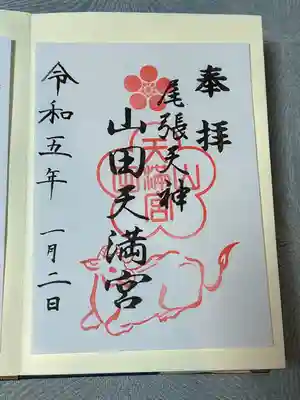 奉拝
尾張天神
山田天満宮
天満宮
令和五年 一月二日